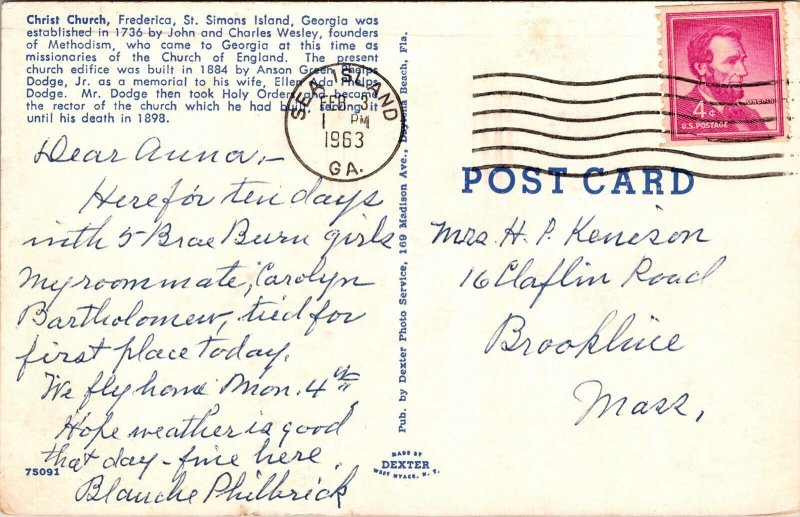 Christ Church, Frederica, St. Simons Island, Georgia was
established in 1736 by John and Charles Wesley, founders
of Methodism, who came to Georgia at this time as
missionaries of the Church of England. The present
church edifice was built in 1884 by Anson Green Phelps
Dodge, Jr. as a memorial to his wife, Ellen Ada Phelps
Dodge. Mr. Dodge then took Holy Orders and became
the rector of the church which he had built serving it
until his death in 1898.
Dear Anna,-
Here for ten days
with 5 Brae Burn girls
My roommate, Carolyn
Bartholomew, tied for
first place today.
We fly home Mon. 4th.
Hope weather is good
that day - fine here.
Blanche Philbrick
75091
SEA ISLAND
FEB 3
1 PM
1963
GA.
Pub. by Dexter Photo Service, 169 Madison Ave., Daytona Beach, Fla.
MADE BY
DEXTER
WEST NYACK, N. Y.
4¢
U.S. POSTAGE
POST CARD
Mrs. H. P. Kenison
16 Claflin Road
Brookline
Mass.